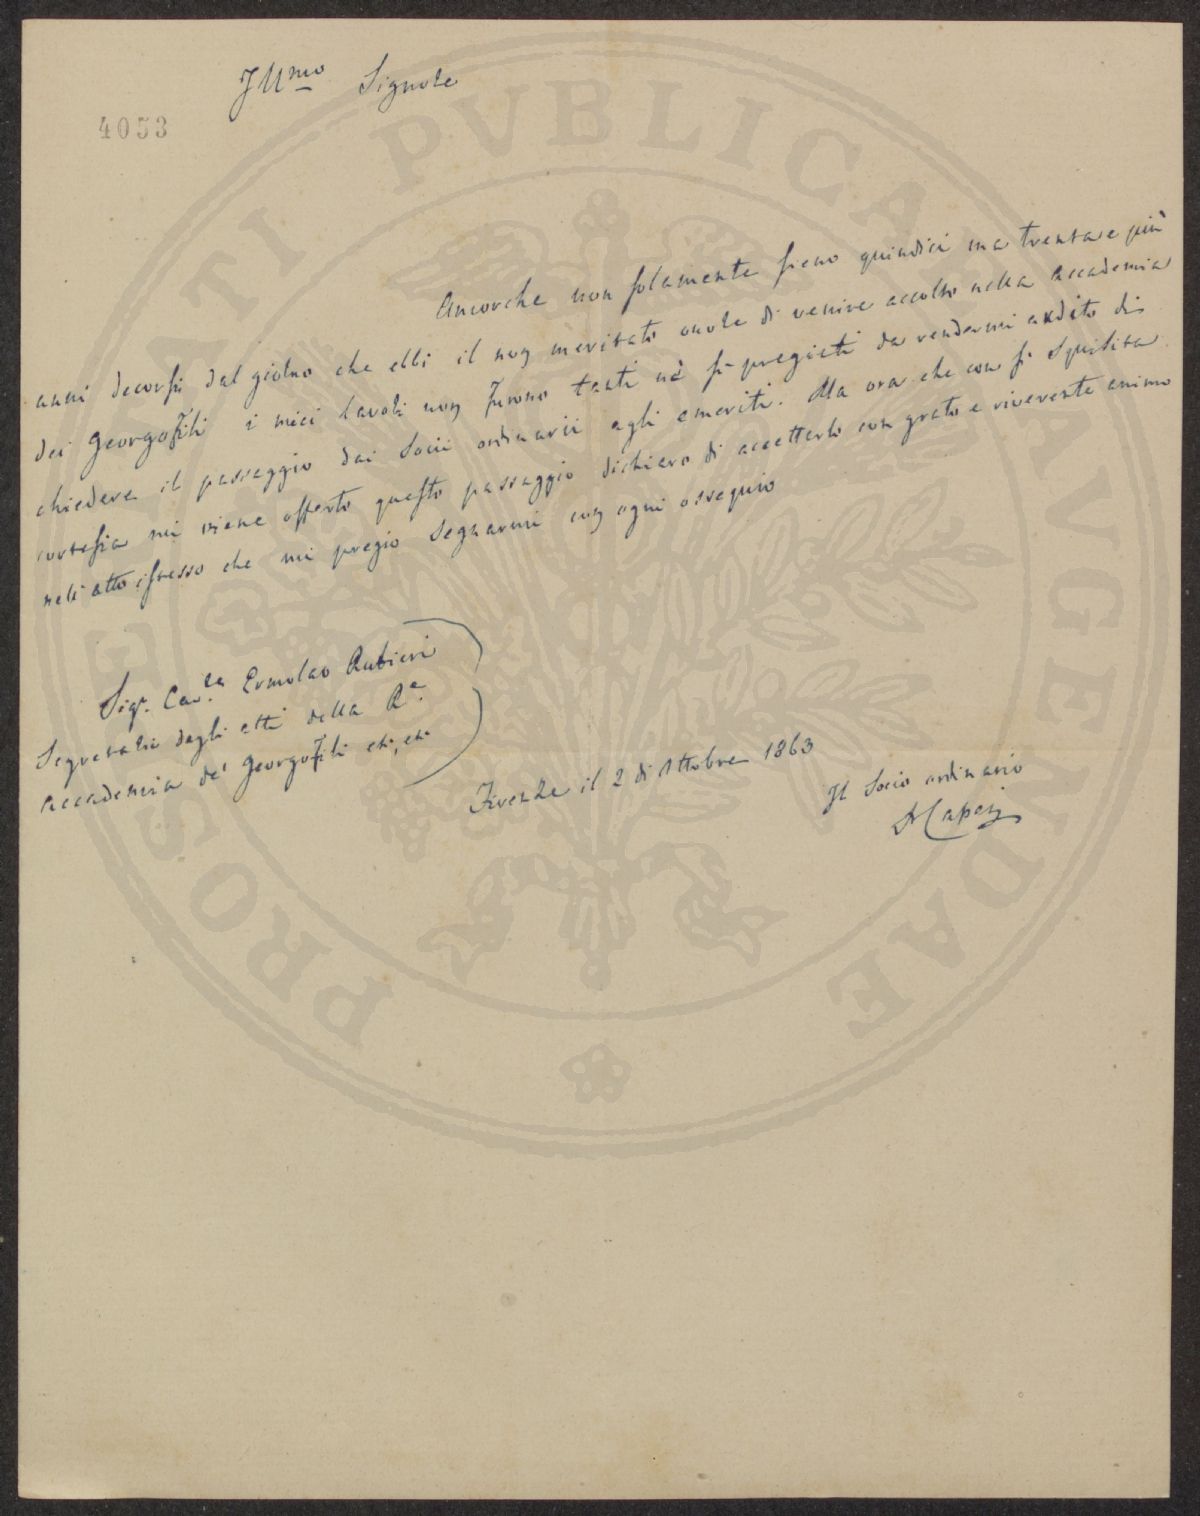 Ill.mo Signore
4053
Ancorche non solamente sieno quindici ma trenta e più
anni decorsi dal giorno che ebbi il non meritato onore di venire accolto nella Accademia
dei Georgofili i miei lavori non furono tanti nè sì pregiati da rendermi ardito di
chiedere il passaggio dai Socii ordinarii agli emeriti. Ma ora che con sì squisita
cortesia mi viene offerto questo passaggio dichiaro di accettarlo con grato e riverente animo
nell'atto istesso che mi pregio segnarmi con ogni ossequio
Sig.r Cav.re Ermolao Rubieri
Segretario degli atti della R.e
Accademia de' Georgofili etc, etc
Firenze il 2 di Ottobre 1863
Il Socio ordinario
A Capei
PROSPERITATI PVBLICAE AVGENDAE